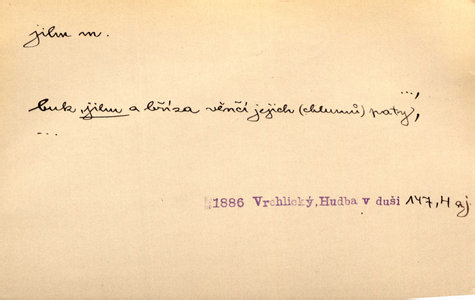 jilm m.
...,
buk, jilm a bříza věnčí jejich (chlumů) paty,
...
1886 Vrchlický, Hudba v duši 147, H aj.